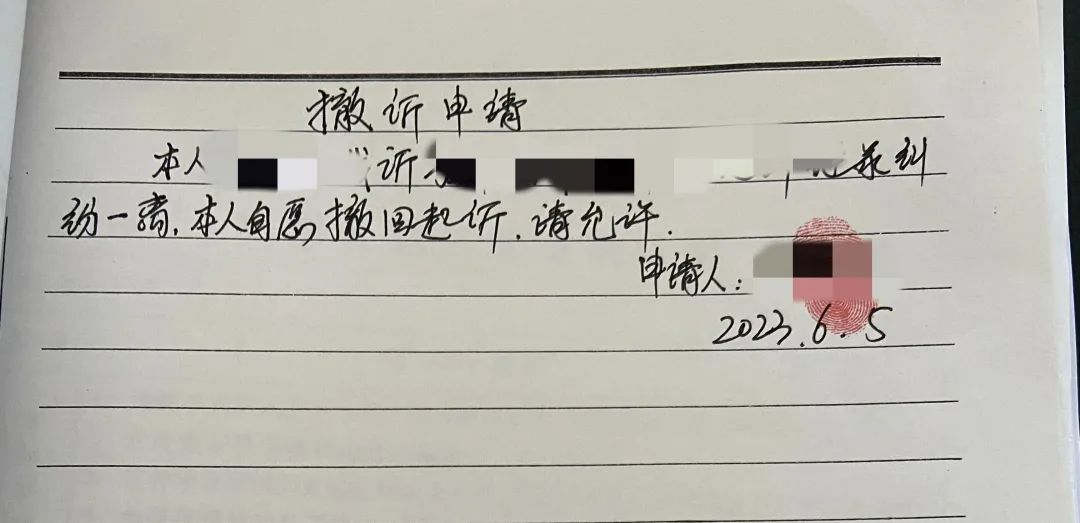 撤诉申请
本人 诉 纠
纷一案,本人自愿撤回起诉,请允许.
申请人:
2023.6.5